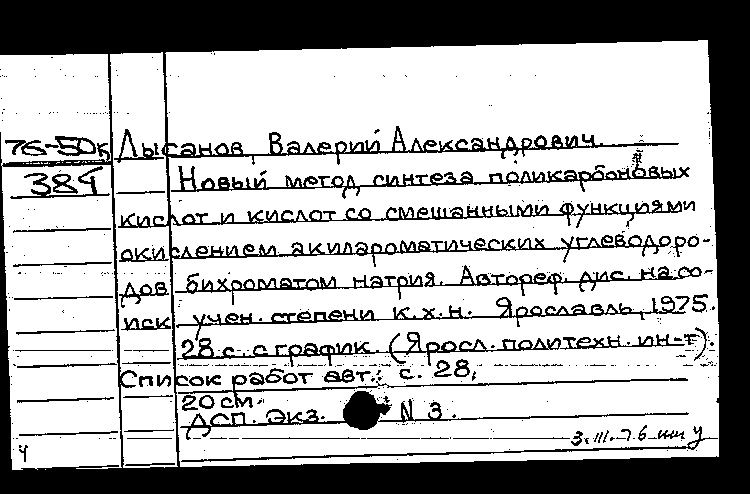 76-50к Лысанов, Валерий Александрович.
384 Новый метод синтеза поликарбоновых
кислот и кислот со смешанными функциями
окислением акилароматических углеводоро-
дов бихроматом натрия. Автореф. дис. на со-
иск. учен. степени к.х.н. Ярославль, 1975.
28 с. с график. (Яросл. политехн. ин-т).
Список работ авт.: с. 28.
20 см.
ДСП. Экз. N 3.
3.III.76
ч